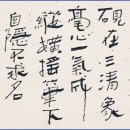 硯在三清象
毫心一氣成
縱橫揮筆下
自隱不求名